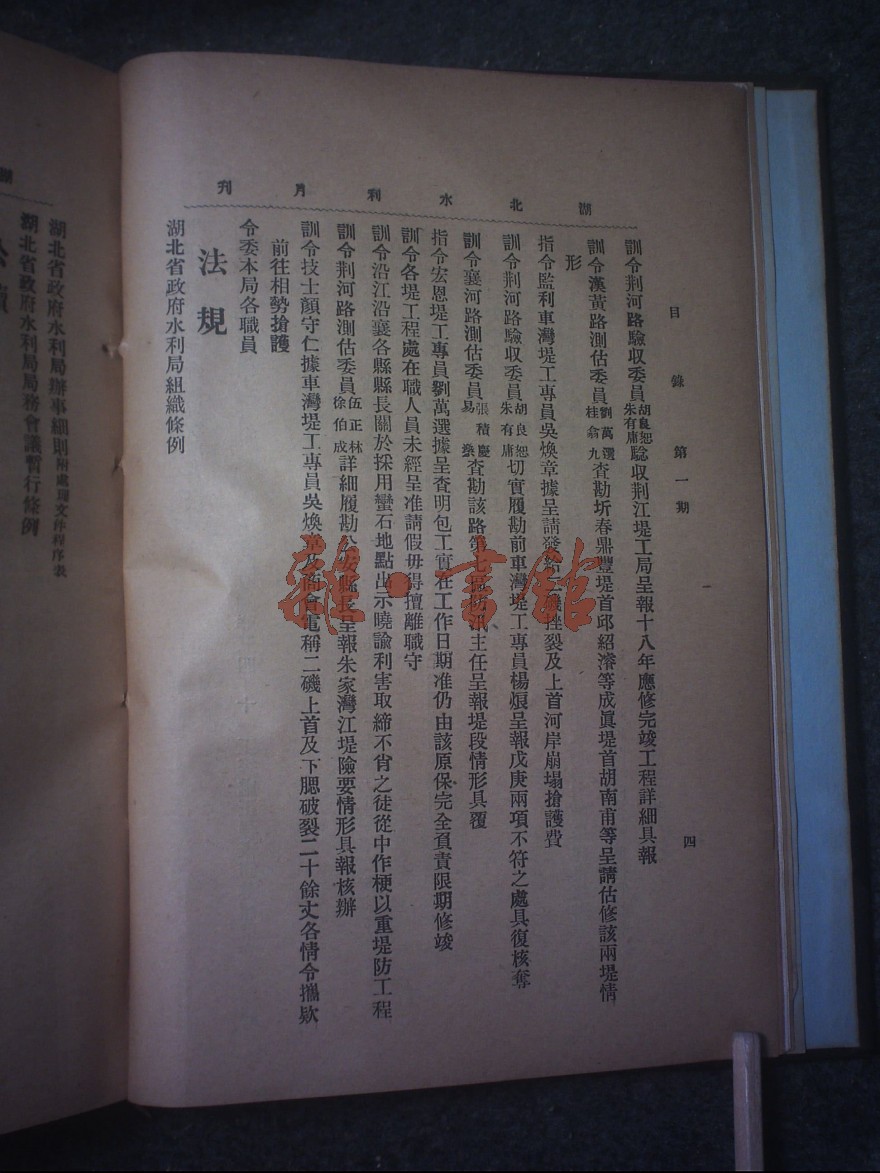 湖北水利月刊
目錄 第一期
四
訓令荆河路驗收委員胡良恕朱有庸驗收荆江堤工局呈報十八年應修完竣工程詳細具報
訓令漢黃路測估委員劉萬選桂翕九查勘圻春鼎豐堤首邱紹濬等成眞堤首胡南甫等呈請估修該兩堤情
形
指令監利車灣堤工專員吳煥章據呈請發給磯挫裂及上首河岸崩塌搶護費
訓令荆河路驗收委員胡良恕朱有庸切實履勘前車灣堤工專員楊煨呈報戊庚兩項不符之處具復核奪
訓令襄河路測估委員張積慶易燊查勘該路第七區防汛主任呈報堤段情形具覆
指令宏恩堤工專員劉萬選據呈查明包工實在工作日期准仍由該原保完全負責限期修竣
訓令各堤工程處在職人員未經呈准請假毋得擅離職守
訓令沿江沿襄各縣縣長關於採用蠻石地點出示曉諭利害取締不肖之徒從中作梗以重堤防工程
訓令荆河路測估委員伍正林徐伯成詳細履勘公安縣長呈報朱家灣江堤險要情形具報核辦
訓令技士顏守仁據車灣堤工專員吳煥章及商會電稱二磯上首及下腮破裂二十餘丈各情令攜欵
前往相勢搶護
令委本局各職員
法規
湖北省政府水利局組織條例
湖北省政府水利局辦事細則附處理文件程序表
湖北省政府水利局局務會議暫行條例
雜·書館